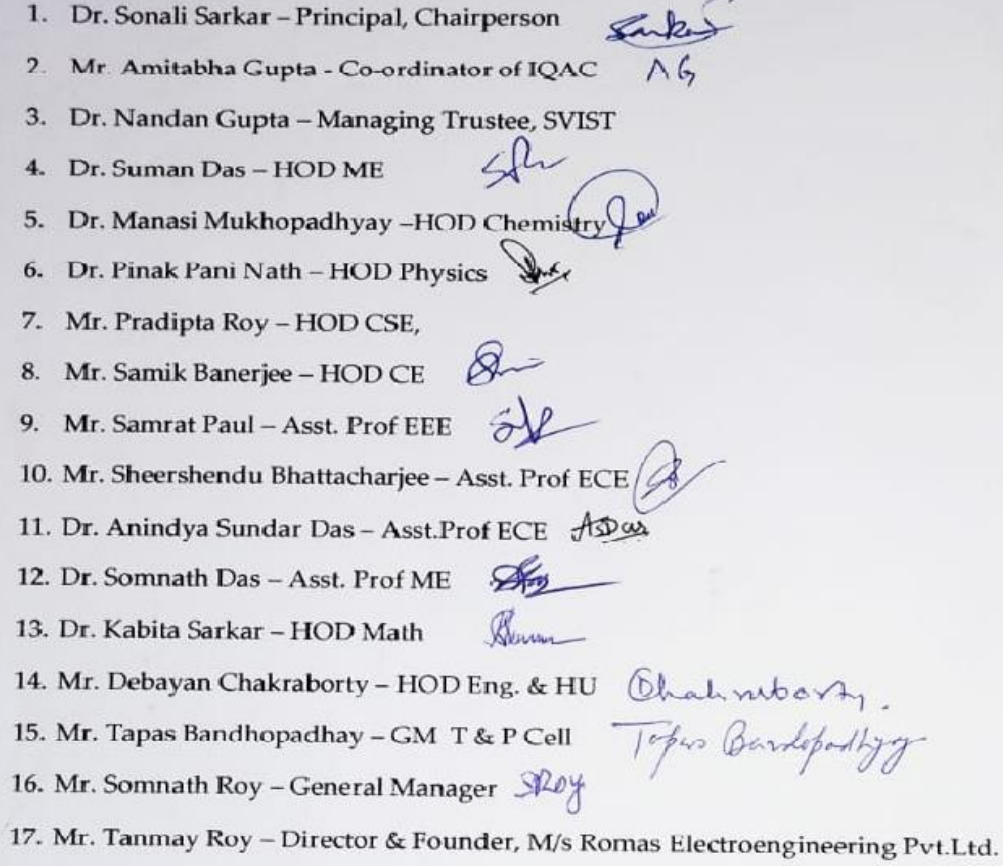 1. Dr. Sonali Sarkar – Principal, Chairperson Sarkar
2. Mr. Amitabha Gupta - Co-ordinator of IQAC AG
3. Dr. Nandan Gupta – Managing Trustee, SVIST
4. Dr. Suman Das – HOD ME
5. Dr. Manasi Mukhopadhyay –HOD Chemistry
6. Dr. Pinak Pani Nath – HOD Physics
7. Mr. Pradipta Roy – HOD CSE,
8. Mr. Samik Banerjee – HOD CE
9. Mr. Samrat Paul – Asst. Prof EEE
10. Mr. Sheershendu Bhattacharjee – Asst. Prof ECE
11. Dr. Anindya Sundar Das – Asst.Prof ECE ASDas
12. Dr. Somnath Das – Asst. Prof ME
13. Dr. Kabita Sarkar – HOD Math
14. Mr. Debayan Chakraborty – HOD Eng. & HU
15. Mr. Tapas Bandhopadhay – GM T & P Cell Tapas Bandopadhyay
16. Mr. Somnath Roy – General Manager SRoy
17. Mr. Tanmay Roy – Director & Founder, M/s Romas Electroengineering Pvt.Ltd.